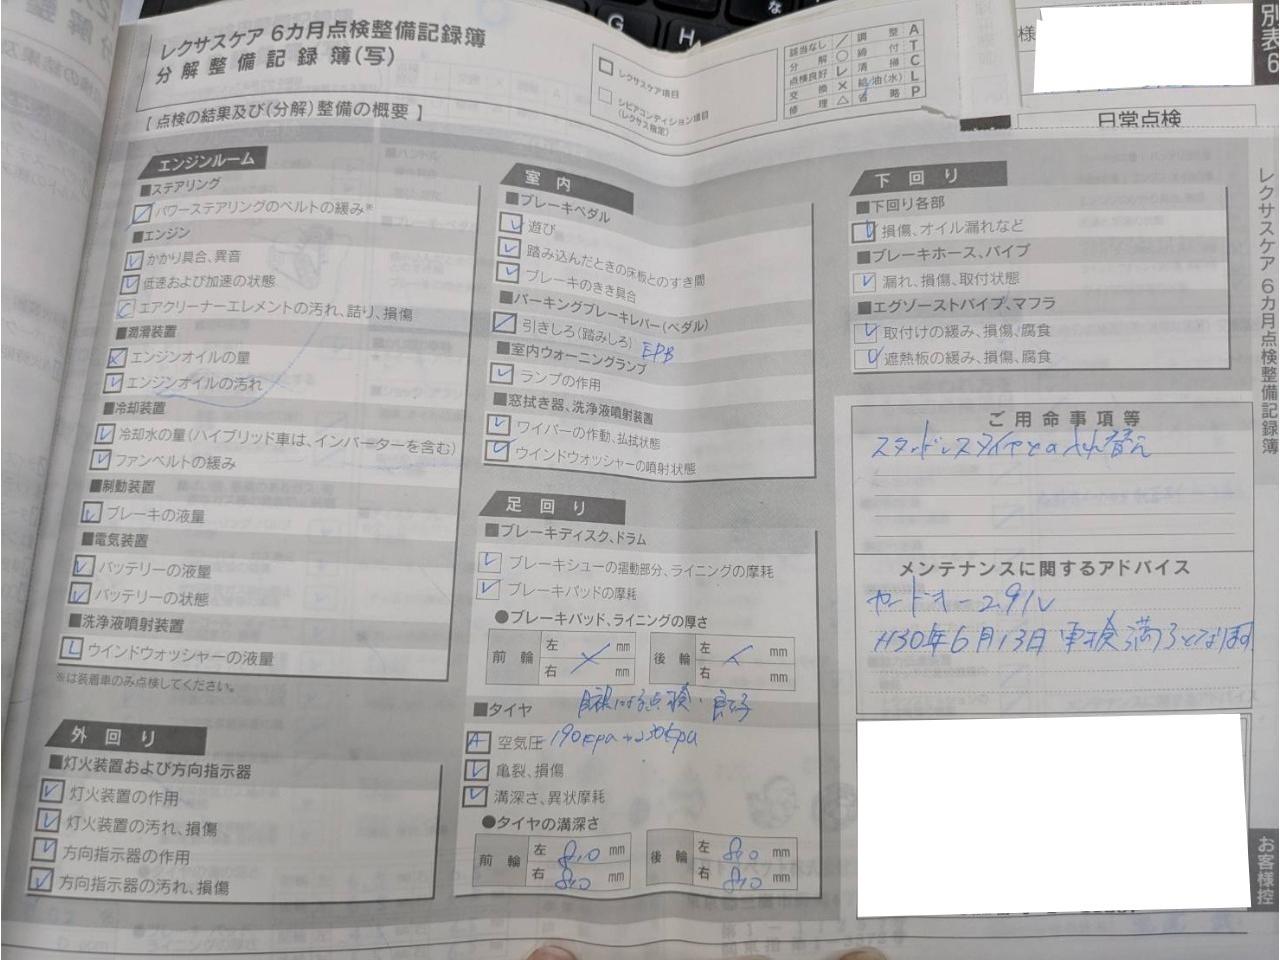 G
H
な
レクサスケア 6カ月点検整備記録簿
分解整備記録簿(写)
[ 点検の結果及び(分解)整備の概要 ]
レクサスケア項目
シビアコンディション項目
(レクサス指定)
該当なし ／ 調整 A
分解 ○ 締付 T
点検良好 レ 清掃 C
交換 × 給油(水) L
修理 △ 省略 P
様
別表6
日常点検
レクサスケア 6カ月点検整備記録簿
お客様控
エンジンルーム
■ステアリング
パワーステアリングのベルトの緩み※
■エンジン
レ かかり具合、異音
レ 低速および加速の状態
C エアクリーナーエレメントの汚れ、詰り、損傷
■潤滑装置
エンジンオイルの量
レ エンジンオイルの汚れ
■冷却装置
レ 冷却水の量(ハイブリッド車は、インバーターを含む)
レ ファンベルトの緩み
■制動装置
レ ブレーキの液量
■電気装置
レ バッテリーの液量
レ バッテリーの状態
■洗浄液噴射装置
L ウインドウォッシャーの液量
※は装着車のみ点検してください。
外回り
■灯火装置および方向指示器
レ 灯火装置の作用
レ 灯火装置の汚れ、損傷
レ 方向指示器の作用
レ 方向指示器の汚れ、損傷
室内
■ブレーキペダル
レ 遊び
レ 踏み込んだときの床板とのすき間
レ ブレーキのきき具合
■パーキングブレーキレバー(ペダル)
／ 引きしろ(踏みしろ) EPB
■室内ウォーニングランプ
レ ランプの作用
■窓拭き器、洗浄液噴射装置
レ ワイパーの作動、払拭状態
レ ウインドウォッシャーの噴射状態
足回り
■ブレーキディスク、ドラム
レ ブレーキシューの摺動部分、ライニングの摩耗
レ ブレーキパッドの摩耗
●ブレーキパッド、ライニングの厚さ
前輪 左 mm 右 mm
後輪 左 mm 右 mm
目視による点検・良好
■タイヤ
A 空気圧 190kpa→230kpa
レ 亀裂、損傷
レ 溝深さ、異状摩耗
●タイヤの溝深さ
前輪 左 8.0 mm 右 8.0 mm
後輪 左 8.0 mm 右 8.0 mm
下回り
■下回り各部
レ 損傷、オイル漏れなど
■ブレーキホース、パイプ
レ 漏れ、損傷、取付状態
■エグゾーストパイプ、マフラ
レ 取付けの緩み、損傷、腐食
レ 遮熱板の緩み、損傷、腐食
ご用命事項等
スタッドレスタイヤとの入れ替え
メンテナンスに関するアドバイス
カードキー 2.91V
H30年6月13日 車検満了となります